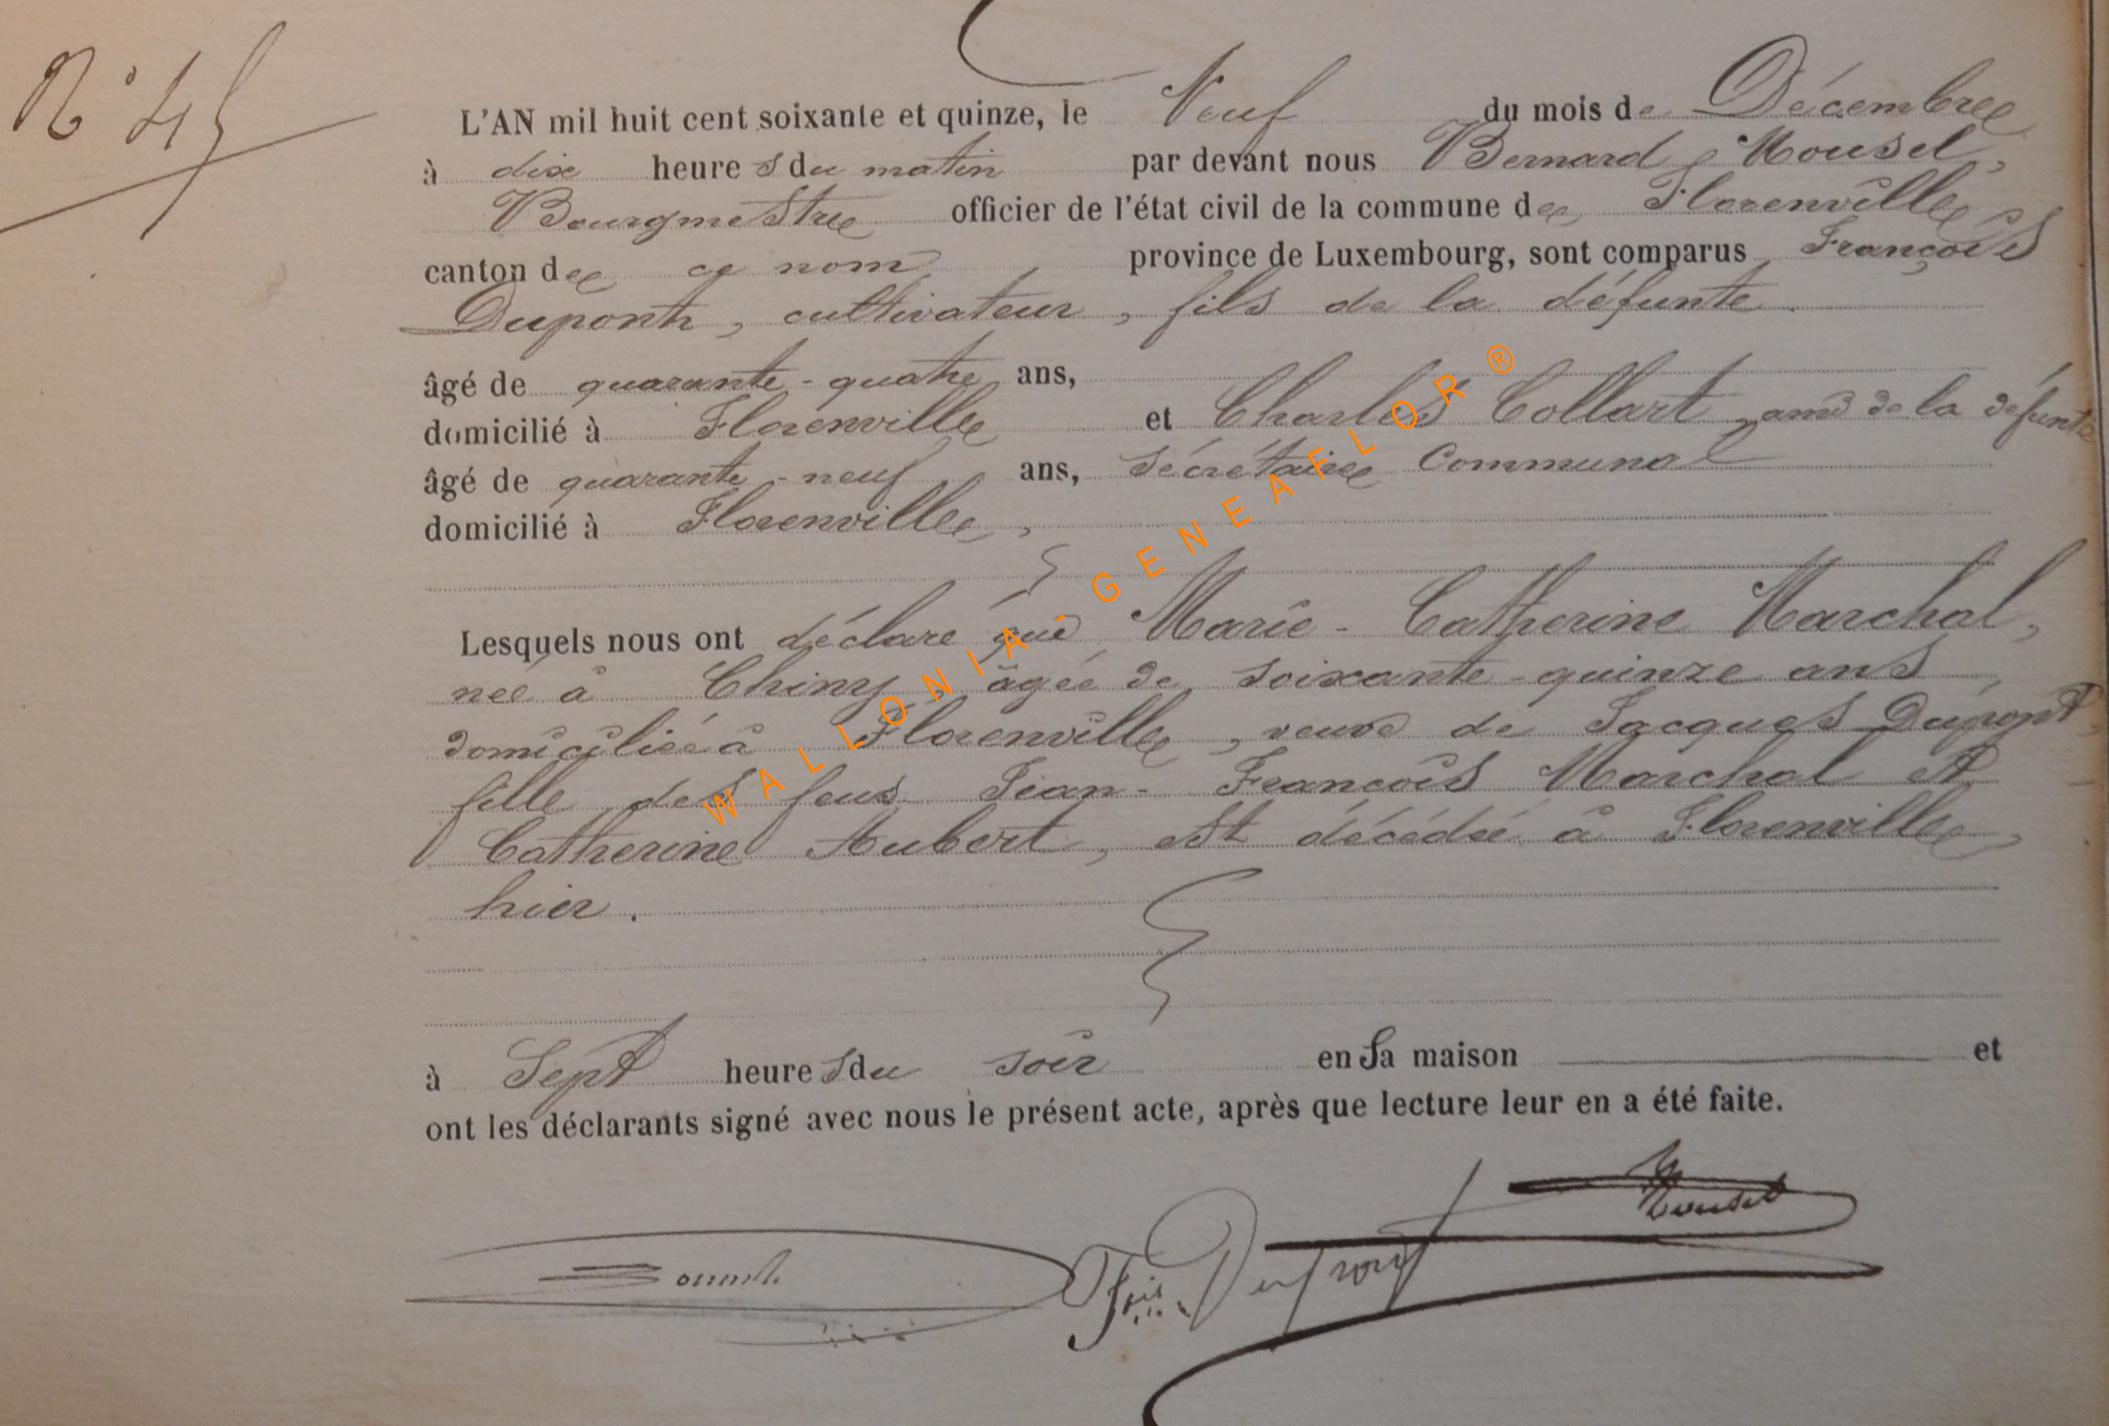 N° 45
L'AN mil huit cent soixante et quinze, le Neuf du mois de Décembre
à dix heures du matin par devant nous Bernard Mousel,
Bourgmestre officier de l'état civil de la commune de Florenville
canton de ce nom, province de Luxembourg, sont comparus François
Dupont, cultivateur, fils de la défunte
âgé de quarante-quatre ans,
domicilié à Florenville et Charles Collart, ami de la défunte
âgé de quarante-neuf ans, secrétaire Communal
domicilié à Florenville,
Lesquels nous ont déclaré que Marie-Catherine Marchal,
née à Chiny, âgée de soixante-quinze ans
domiciliée à Florenville, veuve de Jacques Dupont,
fille des feus Jean-François Marchal et
Catherine Aubert, est décédée à Florenville,
hier.
à Sept heures du soir en sa maison et
ont les déclarants signé avec nous le présent acte, après que lecture leur en a été faite.
Mousel
Fois Dupont
WALLONIA-GENEAFLOR®